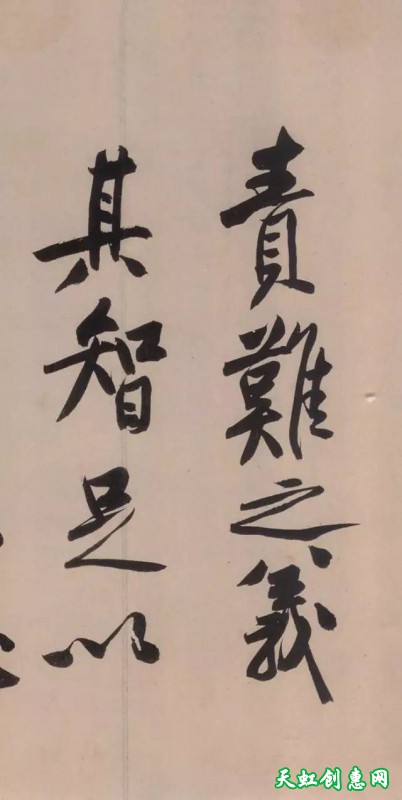 責難之義
其智足以
天虹创惠网